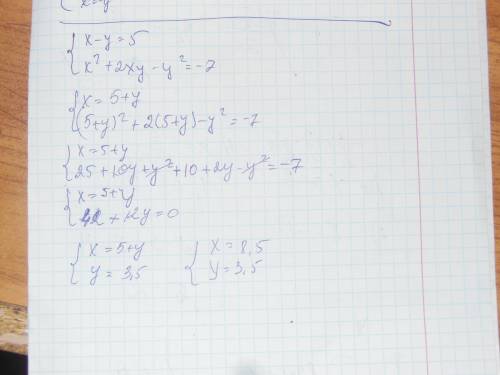 x=y
x-y=5
x²+2xy-y²=-7
x=5+y
(5+y)²+2(5+y)-y²=-7
x=5+y
25+10y+y²+10+2y-y²=-7
x=5+y
42+12y=0
x=5+y x=8,5
y=3,5 y=3,5